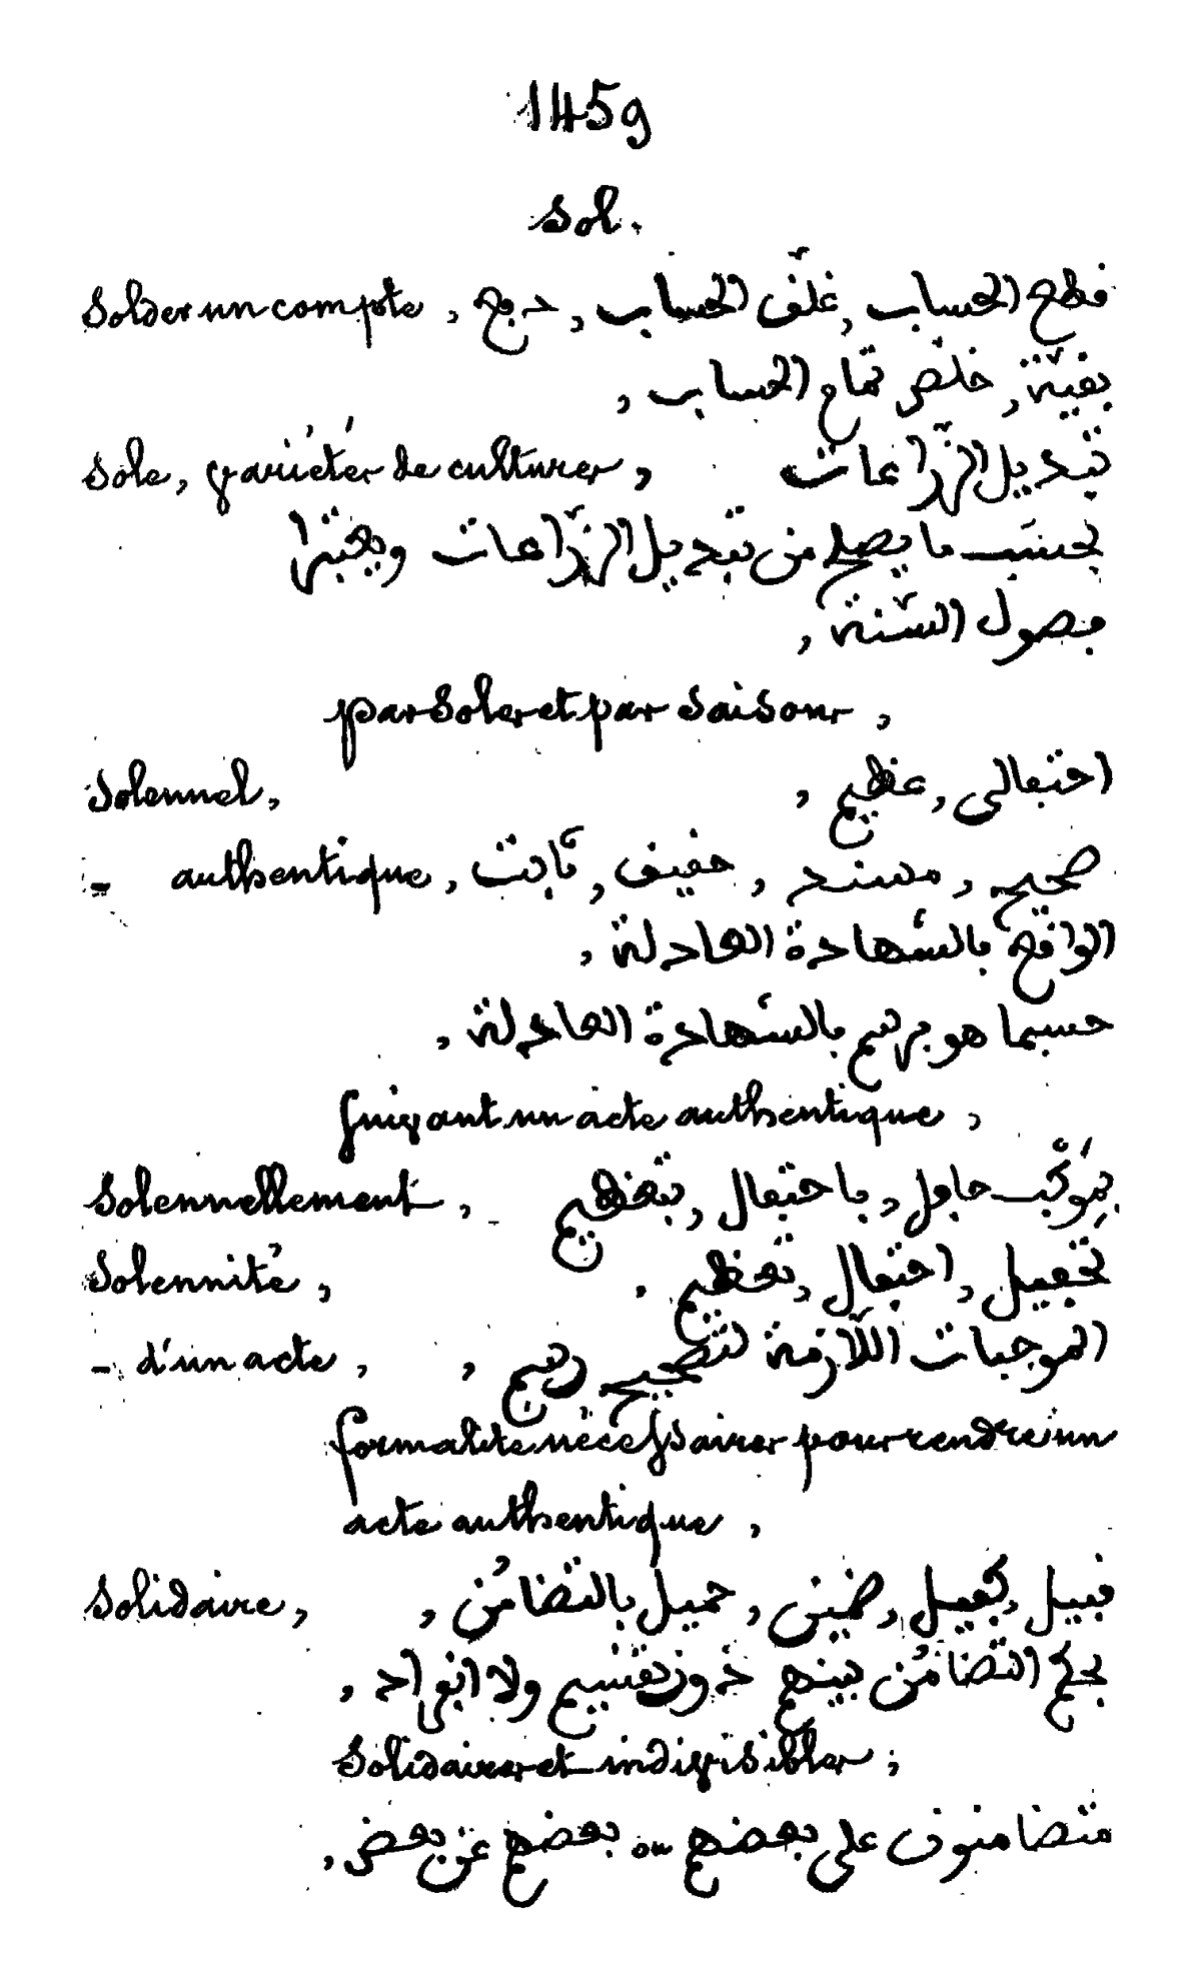 1459
Sol.
Solder un compte, قطع الحساب, غلّق الحساب, دفع
بقيّة, خلّص تمام الحساب,
Sole, variétés de cultures, تبديل الزّراعات
بحسَب ما يصلح من تبديل الزّراعات ويعتبرا
فصول السّنة,
par soles et par saisons,
Solennel, احتفالي, عظيم,
- authentique, صحيح, مسند, حقيق, ثابت,
الواقع بالشّهادة العادلة,
حسبما هو برسم بالشّهادة العادلة,
suivant un acte authentique,
Solennellement, بِمَوْكب حافل, باحتفال, بتعظيم
Solennité, تحفيل, احتفال, تعظيم,
- d'un acte, الموجبات اللّازمة لتصحيح رسم,
formalité nécessaires pour rendre un
acte authentique,
Solidaire, قبيل, كفيل, ضمين, حميل بالتضامُن,
بحكم التضامُن بينهم دون تقسيم ولا انفراد,
Solidaires et indivisibles,
متضامنون على بعضهم ou بعضهم عن بعض,